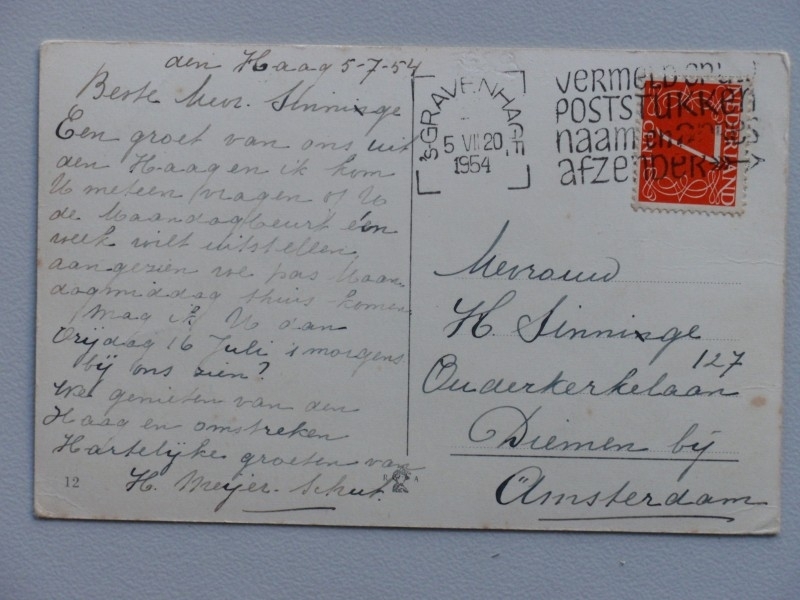 den Haag 5-7-54
Beste Mevr. Sinninge
Een groet van ons uit
den Haag en ik kom
U meteen vragen of U
de Maandagbeurt één
week wilt uitstellen
aangezien we pas Maan
dagmiddag thuis komen.
Mag ik U dan
Vrijdag 16 Juli 's morgens
bij ons zien?
We genieten van den
Haag en omstreken
Hartelijke groeten van
H. Meijer-Schut.
12
'S GRAVENHAGE
5 VII 20
1954
VERMELD OP UW
POSTSTUKKEN
naam en adres
afzender
NEDERLAND
7
CENT
Mevrouw
H. Sinninge
Ouderkerkelaan 127
Diemen bij
Amsterdam